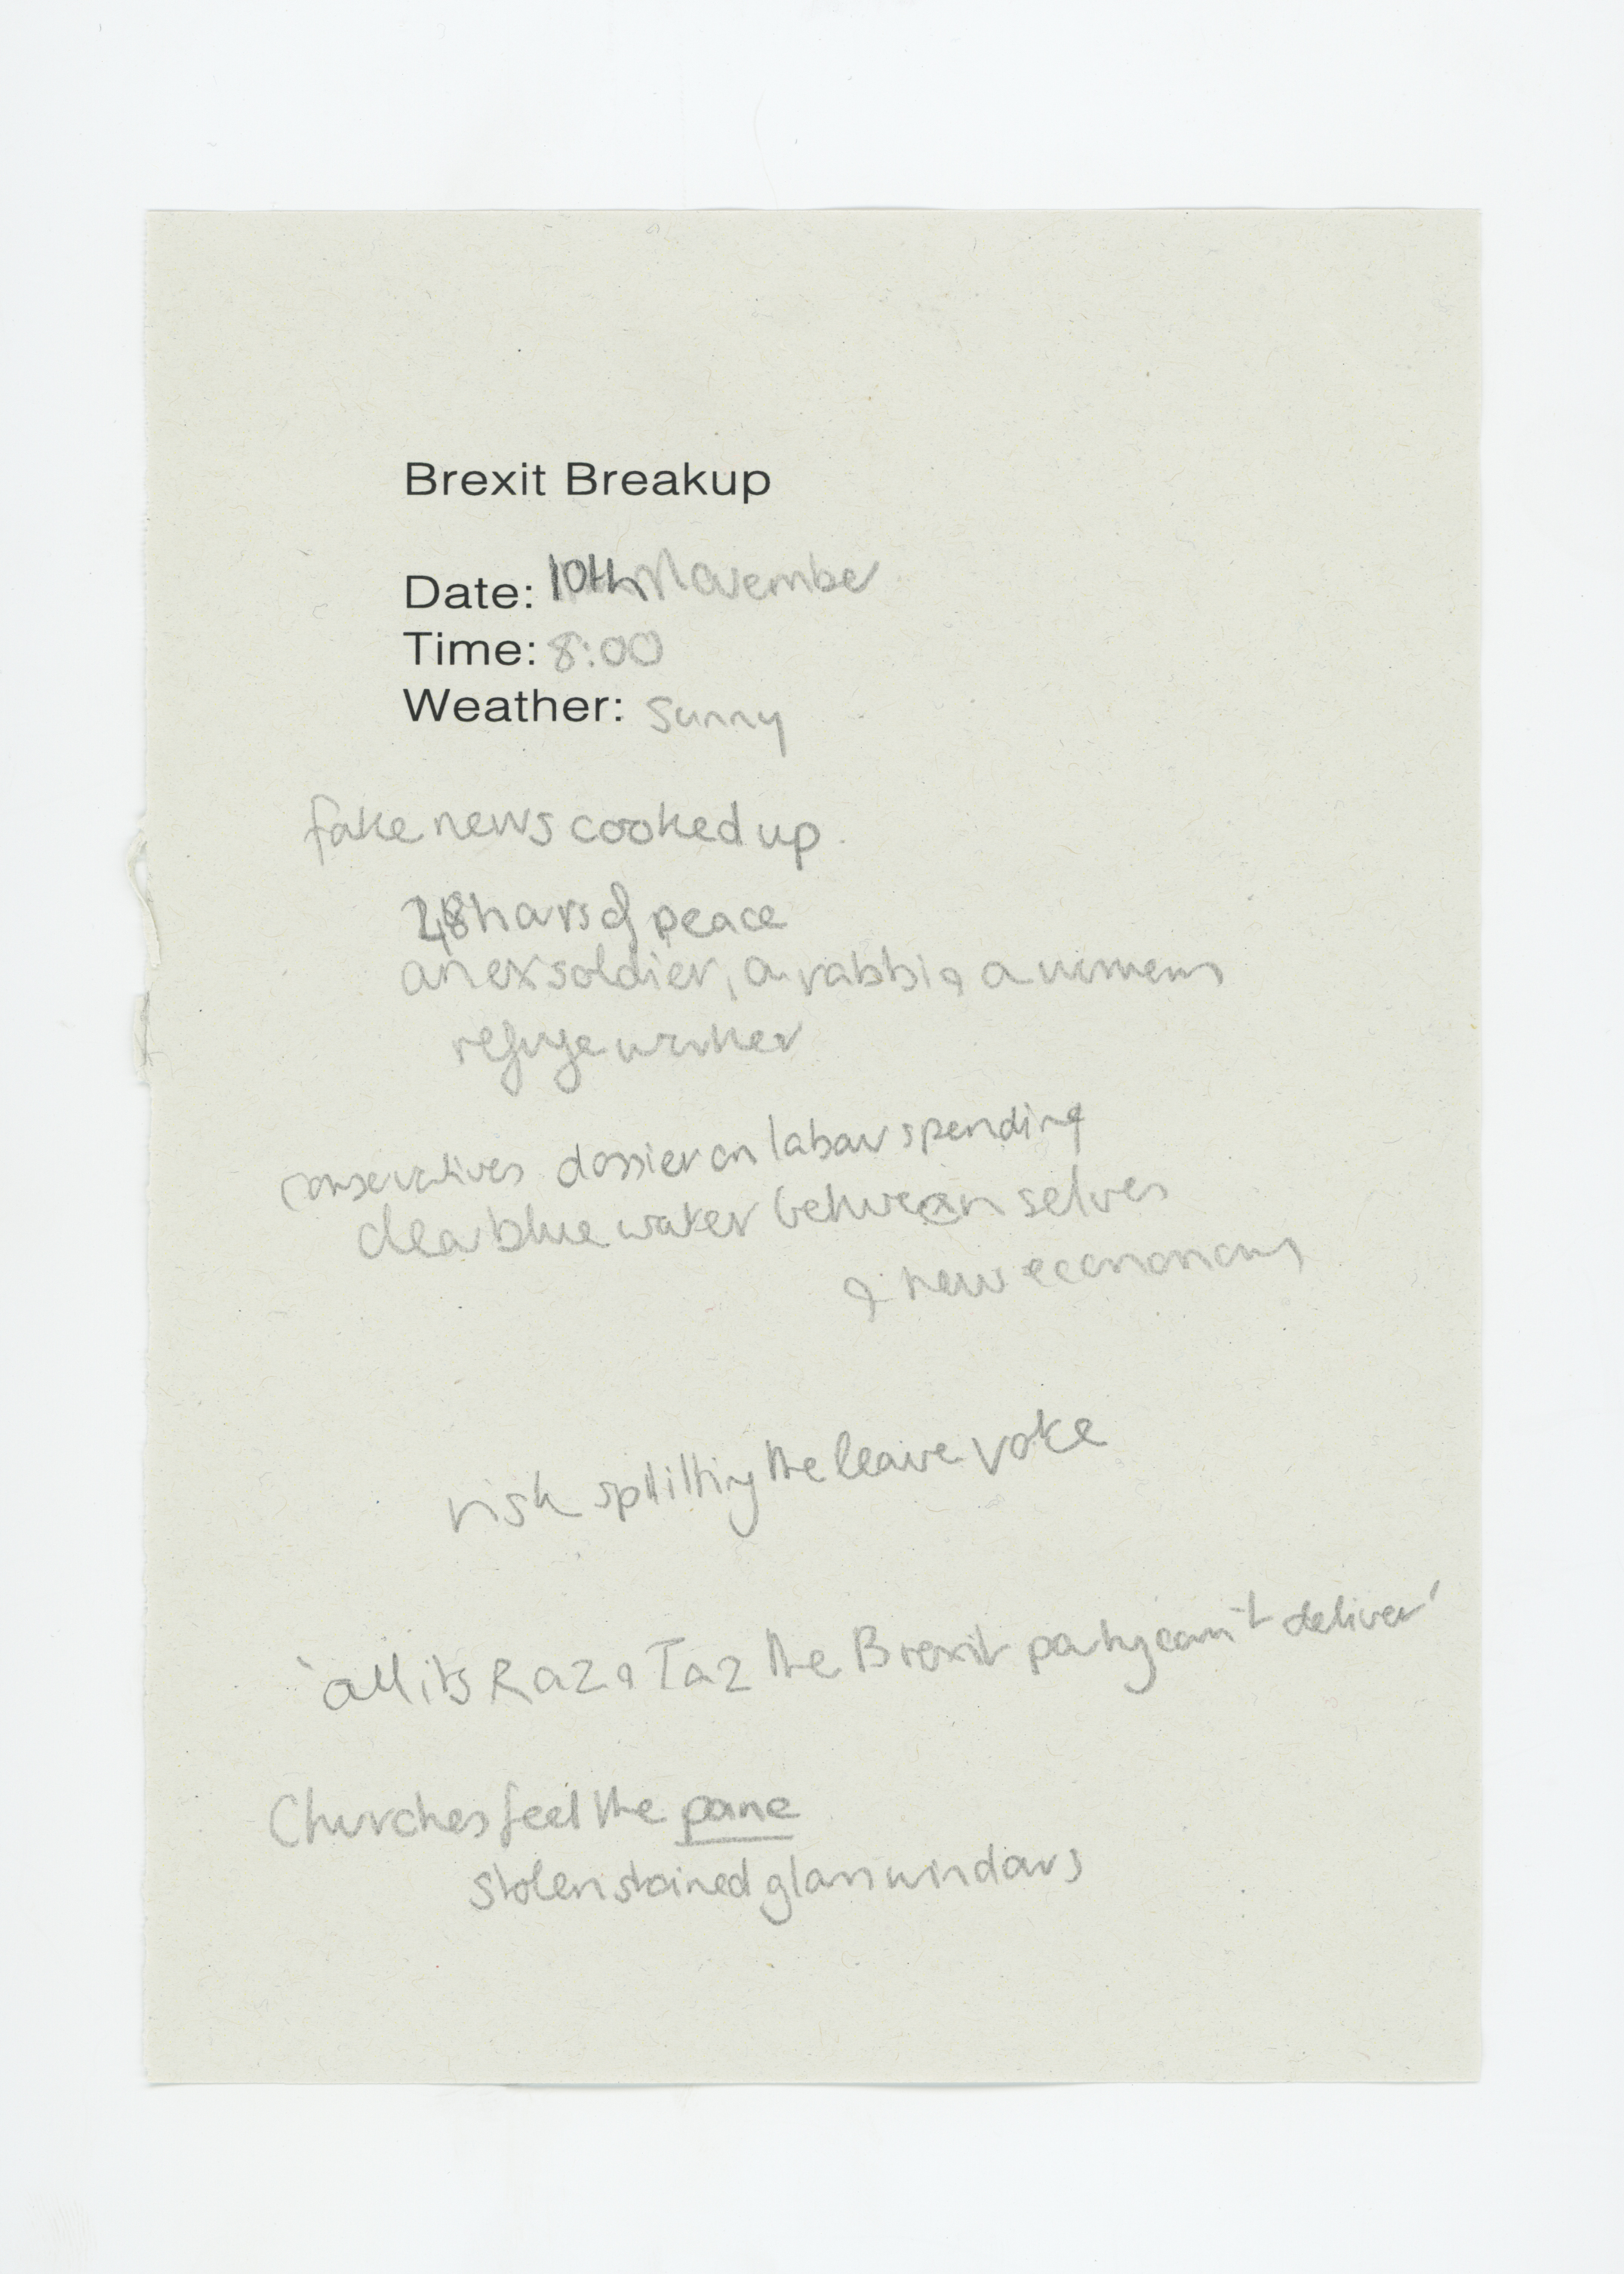 Brexit Breakup
Date: 10th November
Time: 8:00
Weather: Sunny
fake news cooked up.
48 hours of peace
an ex soldier, a rabbi & a womens
refuge worker
conservatives dossier on labour spending
clear blue water between selves
& new economy
risk splitting the leave vote
'all its Raz & Taz the Brexit party can't deliver'
Churches feel the pane
stolen stained glass windows